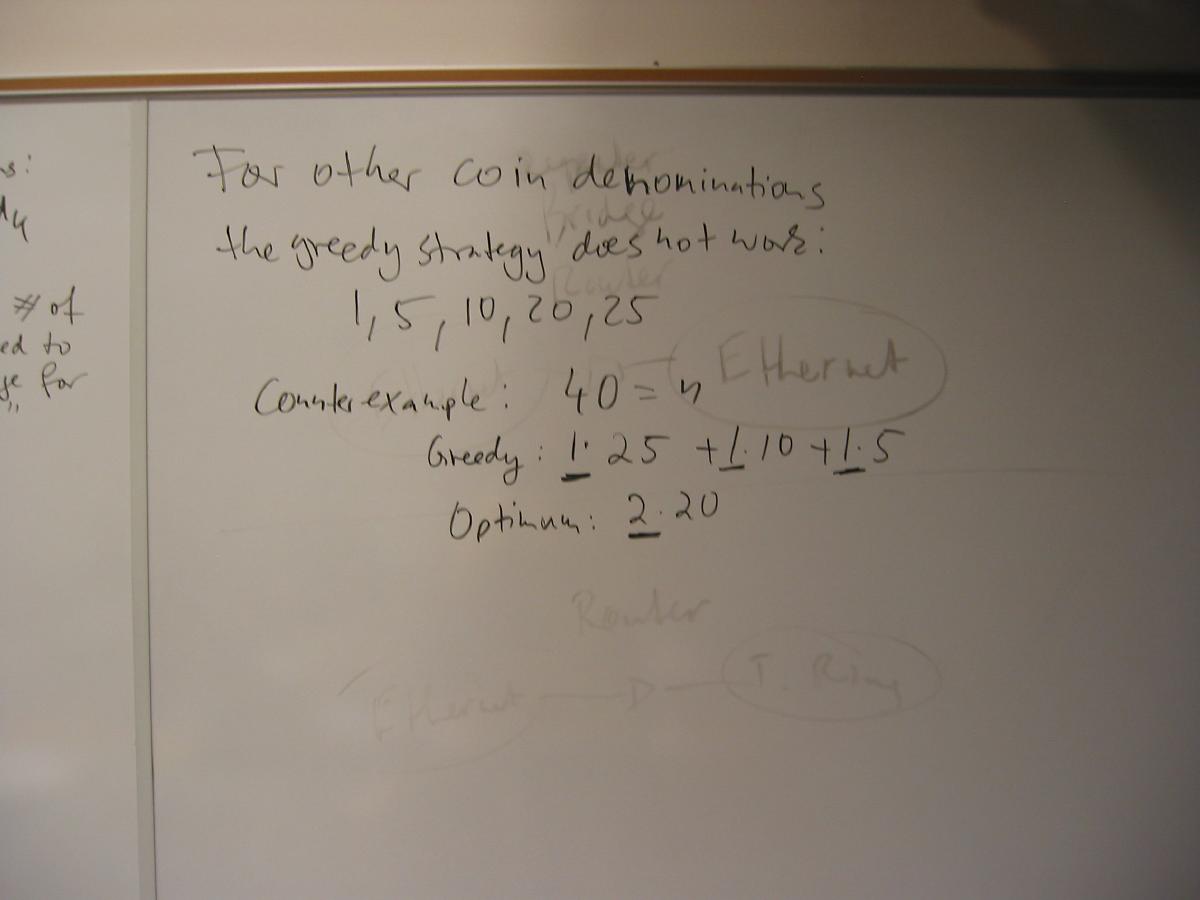 s:
# of
ed to
ge for
"
For other coin denominations
the greedy strategy does not work:
1, 5, 10, 20, 25
Counterexample: 40 = n
Greedy: 1· 25 + 1· 10 + 1· 5
Optimum: 2· 20
Bridge
Router
Ethernet
Router
Ethernet
T. Ring